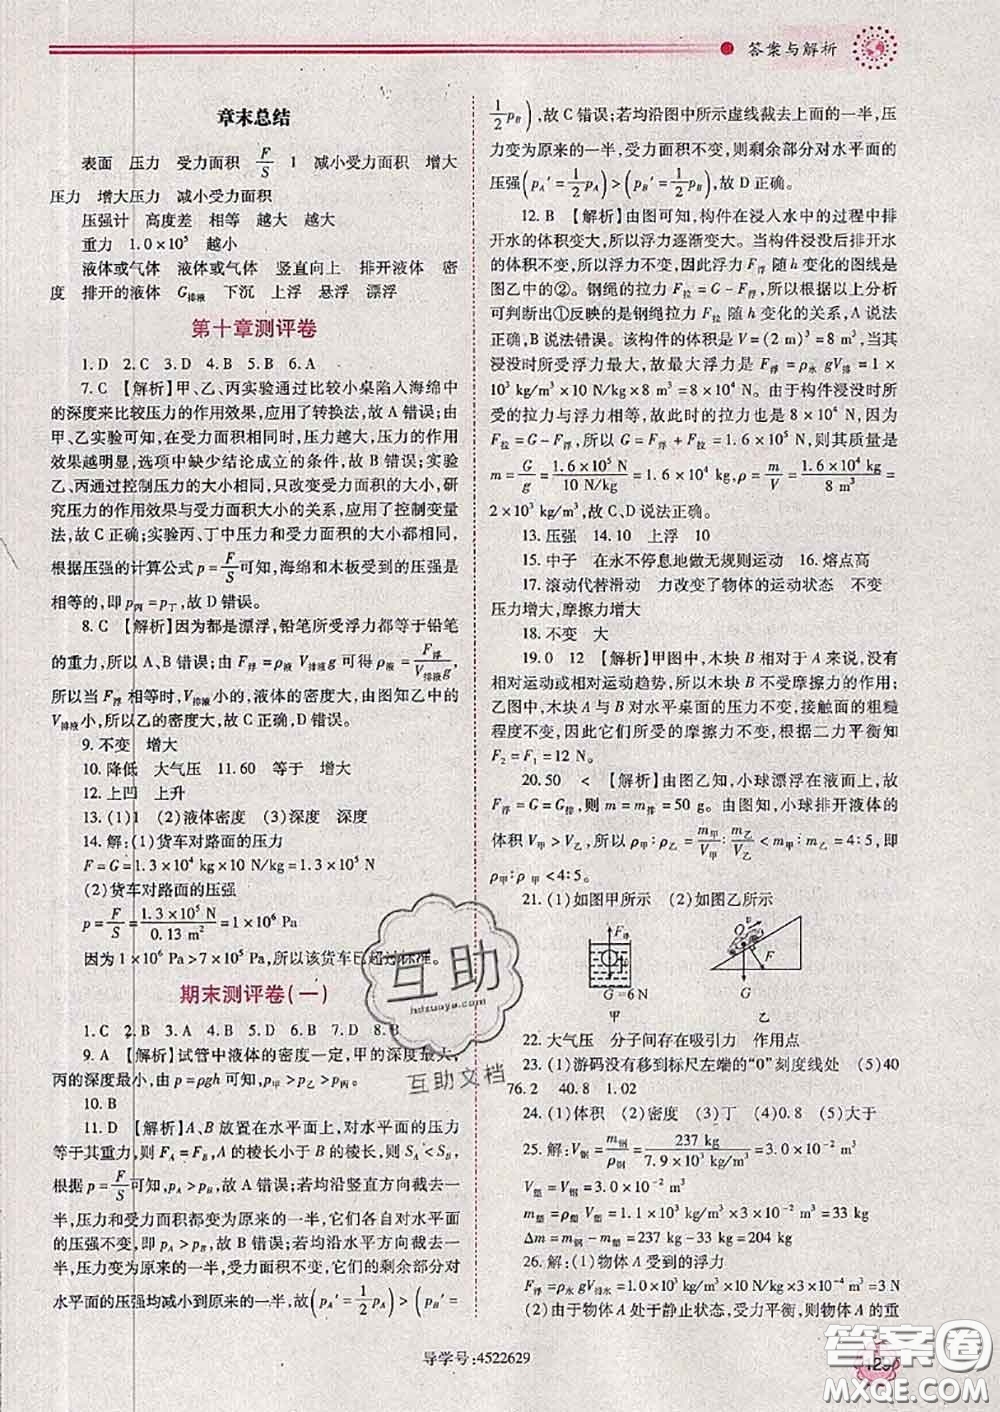 答案与解析
章末总结
表面 压力 受力面积 F/S 1 减小受力面积 增大
压力 增大压力 减小受力面积
压强计 高度差 相等 越大 越大
重力 1.0×10⁵ 越小
液体或气体 液体或气体 竖直向上 排开液体 密
度 排开的液体 G排液 下沉 上浮 悬浮 漂浮
第十章测评卷
1.D 2.C 3.D 4.B 5.B 6.A
7.C 【解析】甲、乙、丙实验通过比较小桌陷入海绵中
的深度来比较压力的作用效果,应用了转换法,故 A 错误;由
甲、乙实验可知,在受力面积相同时,压力越大,压力的作用
效果越明显,选项中缺少结论成立的条件,故 B 错误;实验
乙、丙通过控制压力的大小相等,只改变受力面积的大小,研
究压力的作用效果与受力面积大小的关系,应用了控制变量
法,故 C 正确;实验丙、丁中压力和受力面积的大小都相同,
根据压强的计算公式 p=F/S可知,海绵和木板受到的压强是
相等的,即 p丙=p丁,故 D 错误。
8.C 【解析】因为都是漂浮,铅笔所受浮力都等于铅笔
的重力,所以 A、B 错误;由 F浮=ρ液 V排液g可得ρ液=F浮/V排液g,
所以当 F浮 相等时,V排液小的,液体的密度大,由图知乙中的
V排液小,所以乙的密度大,故 C 正确,D 错误。
9.不变 增大
10.降低 大气压 11.60 等于 增大
12.上凹 上升
13.(1)1 (2)液体密度 (3)深度 深度
14.解:(1)货车对路面的压力
F=G=1.3×10⁴ kg×10 N/kg=1.3×10⁵ N
(2)货车对路面的压强
p=F/S=1.3×10⁵ N/0.13 m²=1×10⁶ Pa
因为 1×10⁶ Pa>7×10⁵ Pa,所以该货车已超过标准。
期末测评卷(一)
1.C 2.B 3.A 4.B 5.D 6.B 7.D 8.B
9.A 【解析】试管中液体的密度一定,甲的深度最大,
丙的深度最小,由 p=ρgh 可知,p甲>p乙>p丙。
10.B
11.D 【解析】A、B 放置在水平面上,对水平面的压力
等于其重力,则 F_A=F_B,A 的棱长小于 B 的棱长,则 S_A<S_B,
根据 p=F/S可知,p_A>p_B,故 A 错误;若均沿竖直方向截去一
半,压力和受力面积都变为原来的一半,它们各自对水平面
的压强不变,即 p_A>p_B,故 B 错误;若均沿水平方向截去一
半,压力变为原来的一半,受力面积不变,它们的剩余部分对
水平面的压强均减小到原来的一半,故(p_A′=1/2p_A)>(p_B′=
1/2p_B),故 C 错误;若均沿图中所示虚线截去上面的一半,压
力变为原来的一半,受力面积不变,则剩余部分对水平面的
压强(p_A′=1/2p_A)>(p_B′=1/2p_B),故 D 正确。
12.B 【解析】由图可知,构件在浸入水中的过程中排
开水的体积变大,所以浮力逐渐变大。当构件浸没后排开水
的体积不变,所以浮力不变,因此浮力 F浮 随 h 变化的图线是
图乙中的②。钢绳的拉力 F拉=G-F浮,所以根据以上分析
可判断出①反映的是钢绳拉力 F拉 随 h 变化的关系,A 说法
正确,B 说法错误。该构件的体积 V=(2 m)³=8 m³,当其
浸没时所受浮力最大,故最大浮力是 F浮=ρ水 gV排=1×
10³ kg/m³×10 N/kg×8 m³=8×10⁴ N。由于构件浸没时所
受的拉力与浮力相等,故此时的拉力也是 8×10⁴ N,因为
F拉=G-F浮,所以 G=F浮+F拉=1.6×10⁵ N,则其质量是
m=G/g=1.6×10⁵ N/10 N/kg=1.6×10⁴ kg,由密度 ρ=m/V=1.6×10⁴ kg/8 m³=
2×10³ kg/m³,故 C、D 说法正确。
13.压强 14.10 上浮 10
15.中子 在永不停息地做无规则运动 16.熔点高
17.滚动代替滑动 力改变了物体的运动状态 不变
压力增大,摩擦力增大
18.不变 大
19.0 12 【解析】甲图中,木块 B 相对于 A 来说,没有
相对运动或相对运动趋势,所以木块 B 不受摩擦力的作用;
乙图中,木块 A 与 B 对水平桌面的压力不变,接触面的粗糙
程度不变,因此它们所受的摩擦力不变,根据二力平衡知
F₂=F₁=12 N。
20.50 < 【解析】由图乙知,小球漂浮在液面上,故
F浮=G=G排,则 m=m排=50 g。由题知,小球排开液体的
体积 V甲>V乙,所以 ρ甲∶ρ乙=m甲/V甲∶m乙/V乙<m甲∶m乙=4∶5,即
ρ甲∶ρ乙<4∶5。
21.(1)如图甲所示 (2)如图乙所示
F浮
G=6 N
甲
v
O
F
G
乙
22.大气压 分子间存在吸引力 作用点
23.(1)游码没有移到标尺左端的“0”刻度线处 (5)40
76.2 40.8 1.02
24.(1)体积 (2)密度 (3)丁 (4)0.8 (5)大于
25.解:V钢=m钢/ρ钢=237 kg/7.9×10³ kg/m³=3.0×10⁻² m³
V塑=V钢=3.0×10⁻² m³
m塑=ρ塑 V塑=1.1×10³ kg/m³×3×10⁻² m³=33 kg
Δm=m钢-m塑=237 kg-33 kg=204 kg
26.解:(1)物体 A 受到的浮力
F浮=ρ水 gV排水=1.0×10³ kg/m³×10 N/kg×3×10⁻⁴ m³=3 N
(2)由于物体 A 处于静止状态,受力平衡,则物体 A 的重
互助
hdzuoye.com
互助文档
导学号:4522629
129
答案圈
MXQE.COM